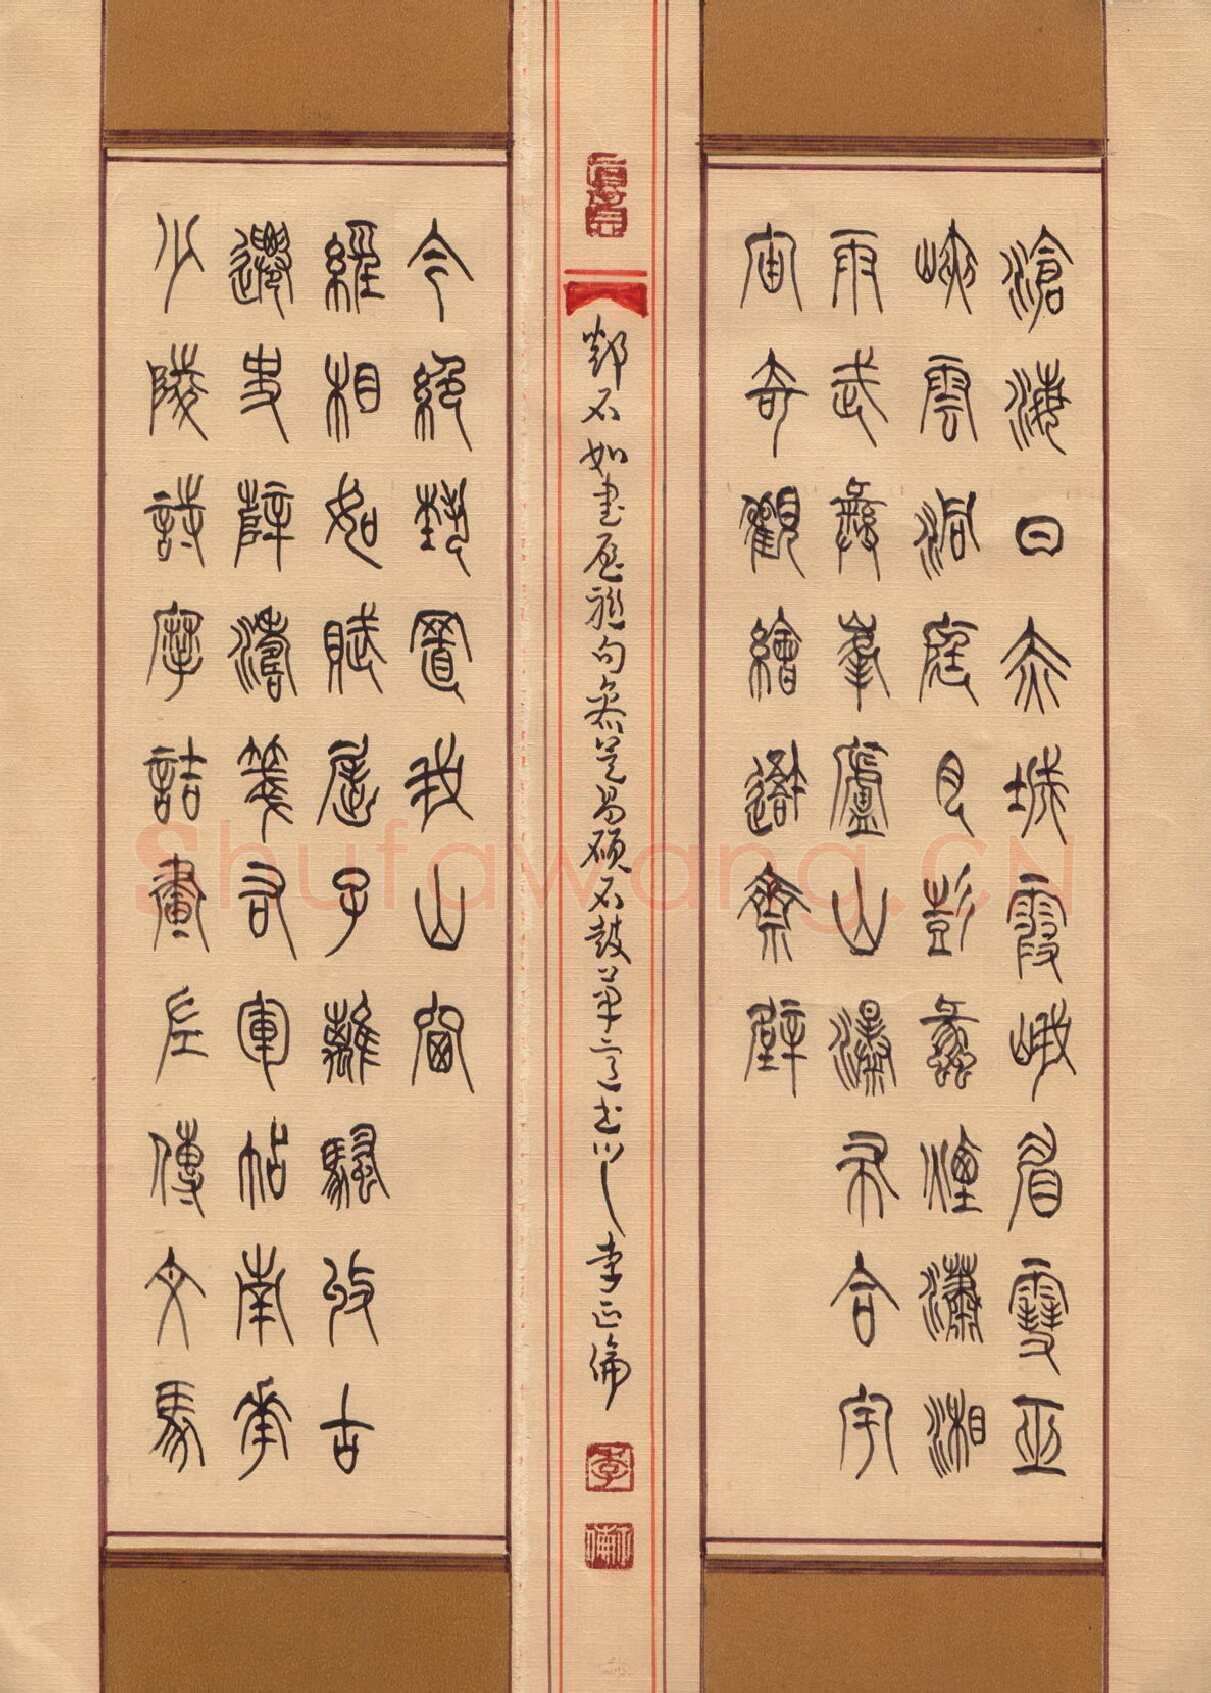 滄海日赤城霞峨眉雪巫
峽雲洞庭月彭蠡煙瀟湘
雨武彝峯廬山瀑布合宇
宙奇觀繪吾齋壁
少陵詩摩詰畫左傳文馬
遷史薛濤箋右軍帖南華
經相如賦屈子離騷收古
今絕藝置我山窗
鄧石如書屋聯句參吳昌碩石鼓筆意书 李正倫
Shufawang.CN